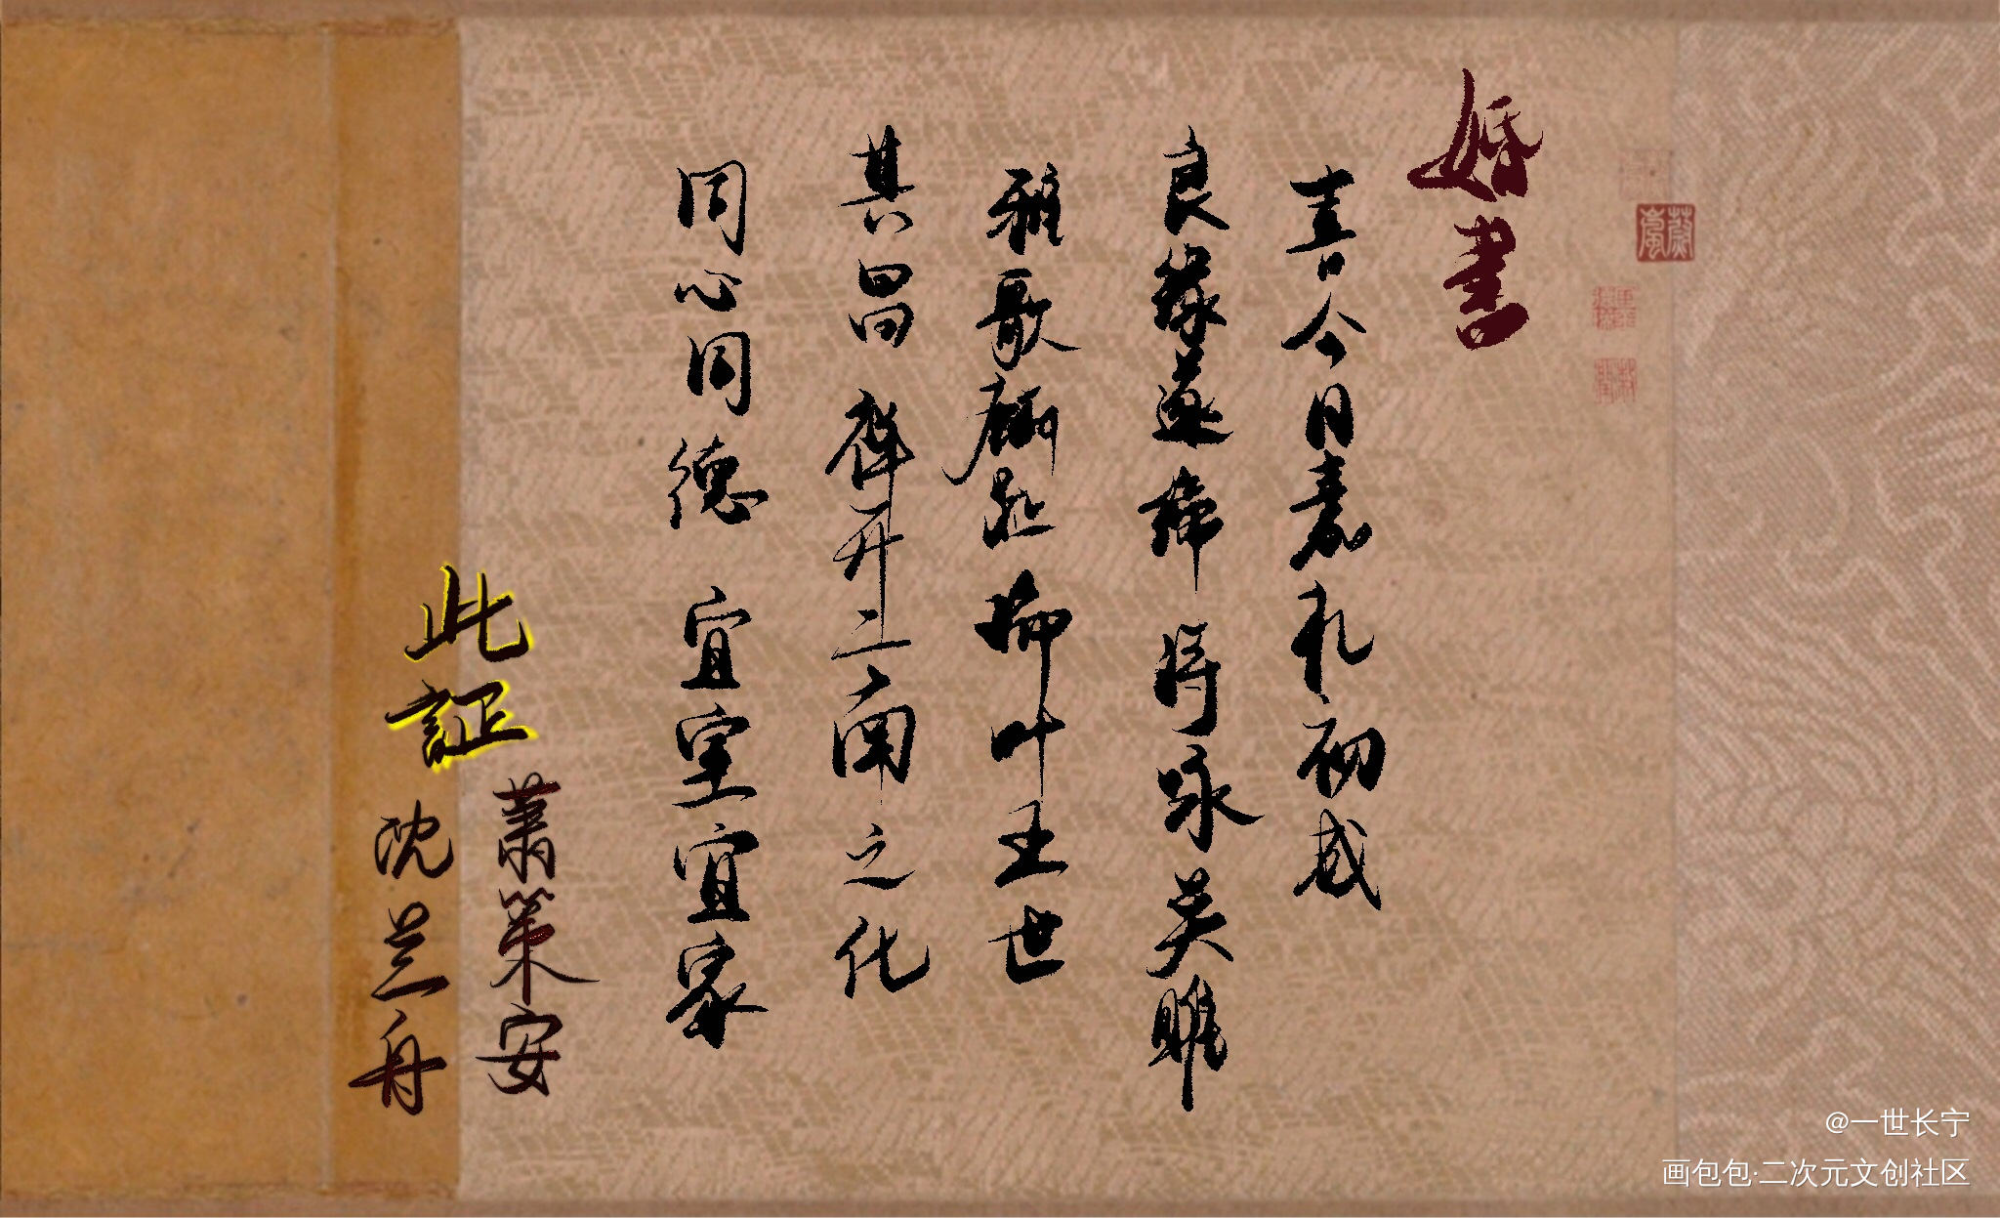 婚書
喜今日嘉礼初成
良缘遂缔 诗咏关雎
雅歌麟趾 瑞叶五世
其昌 祥开二南之化
同心同德 宜室宜家
此証
萧策安
沈兰舟
@一世长宁
画包包·二次元文创社区